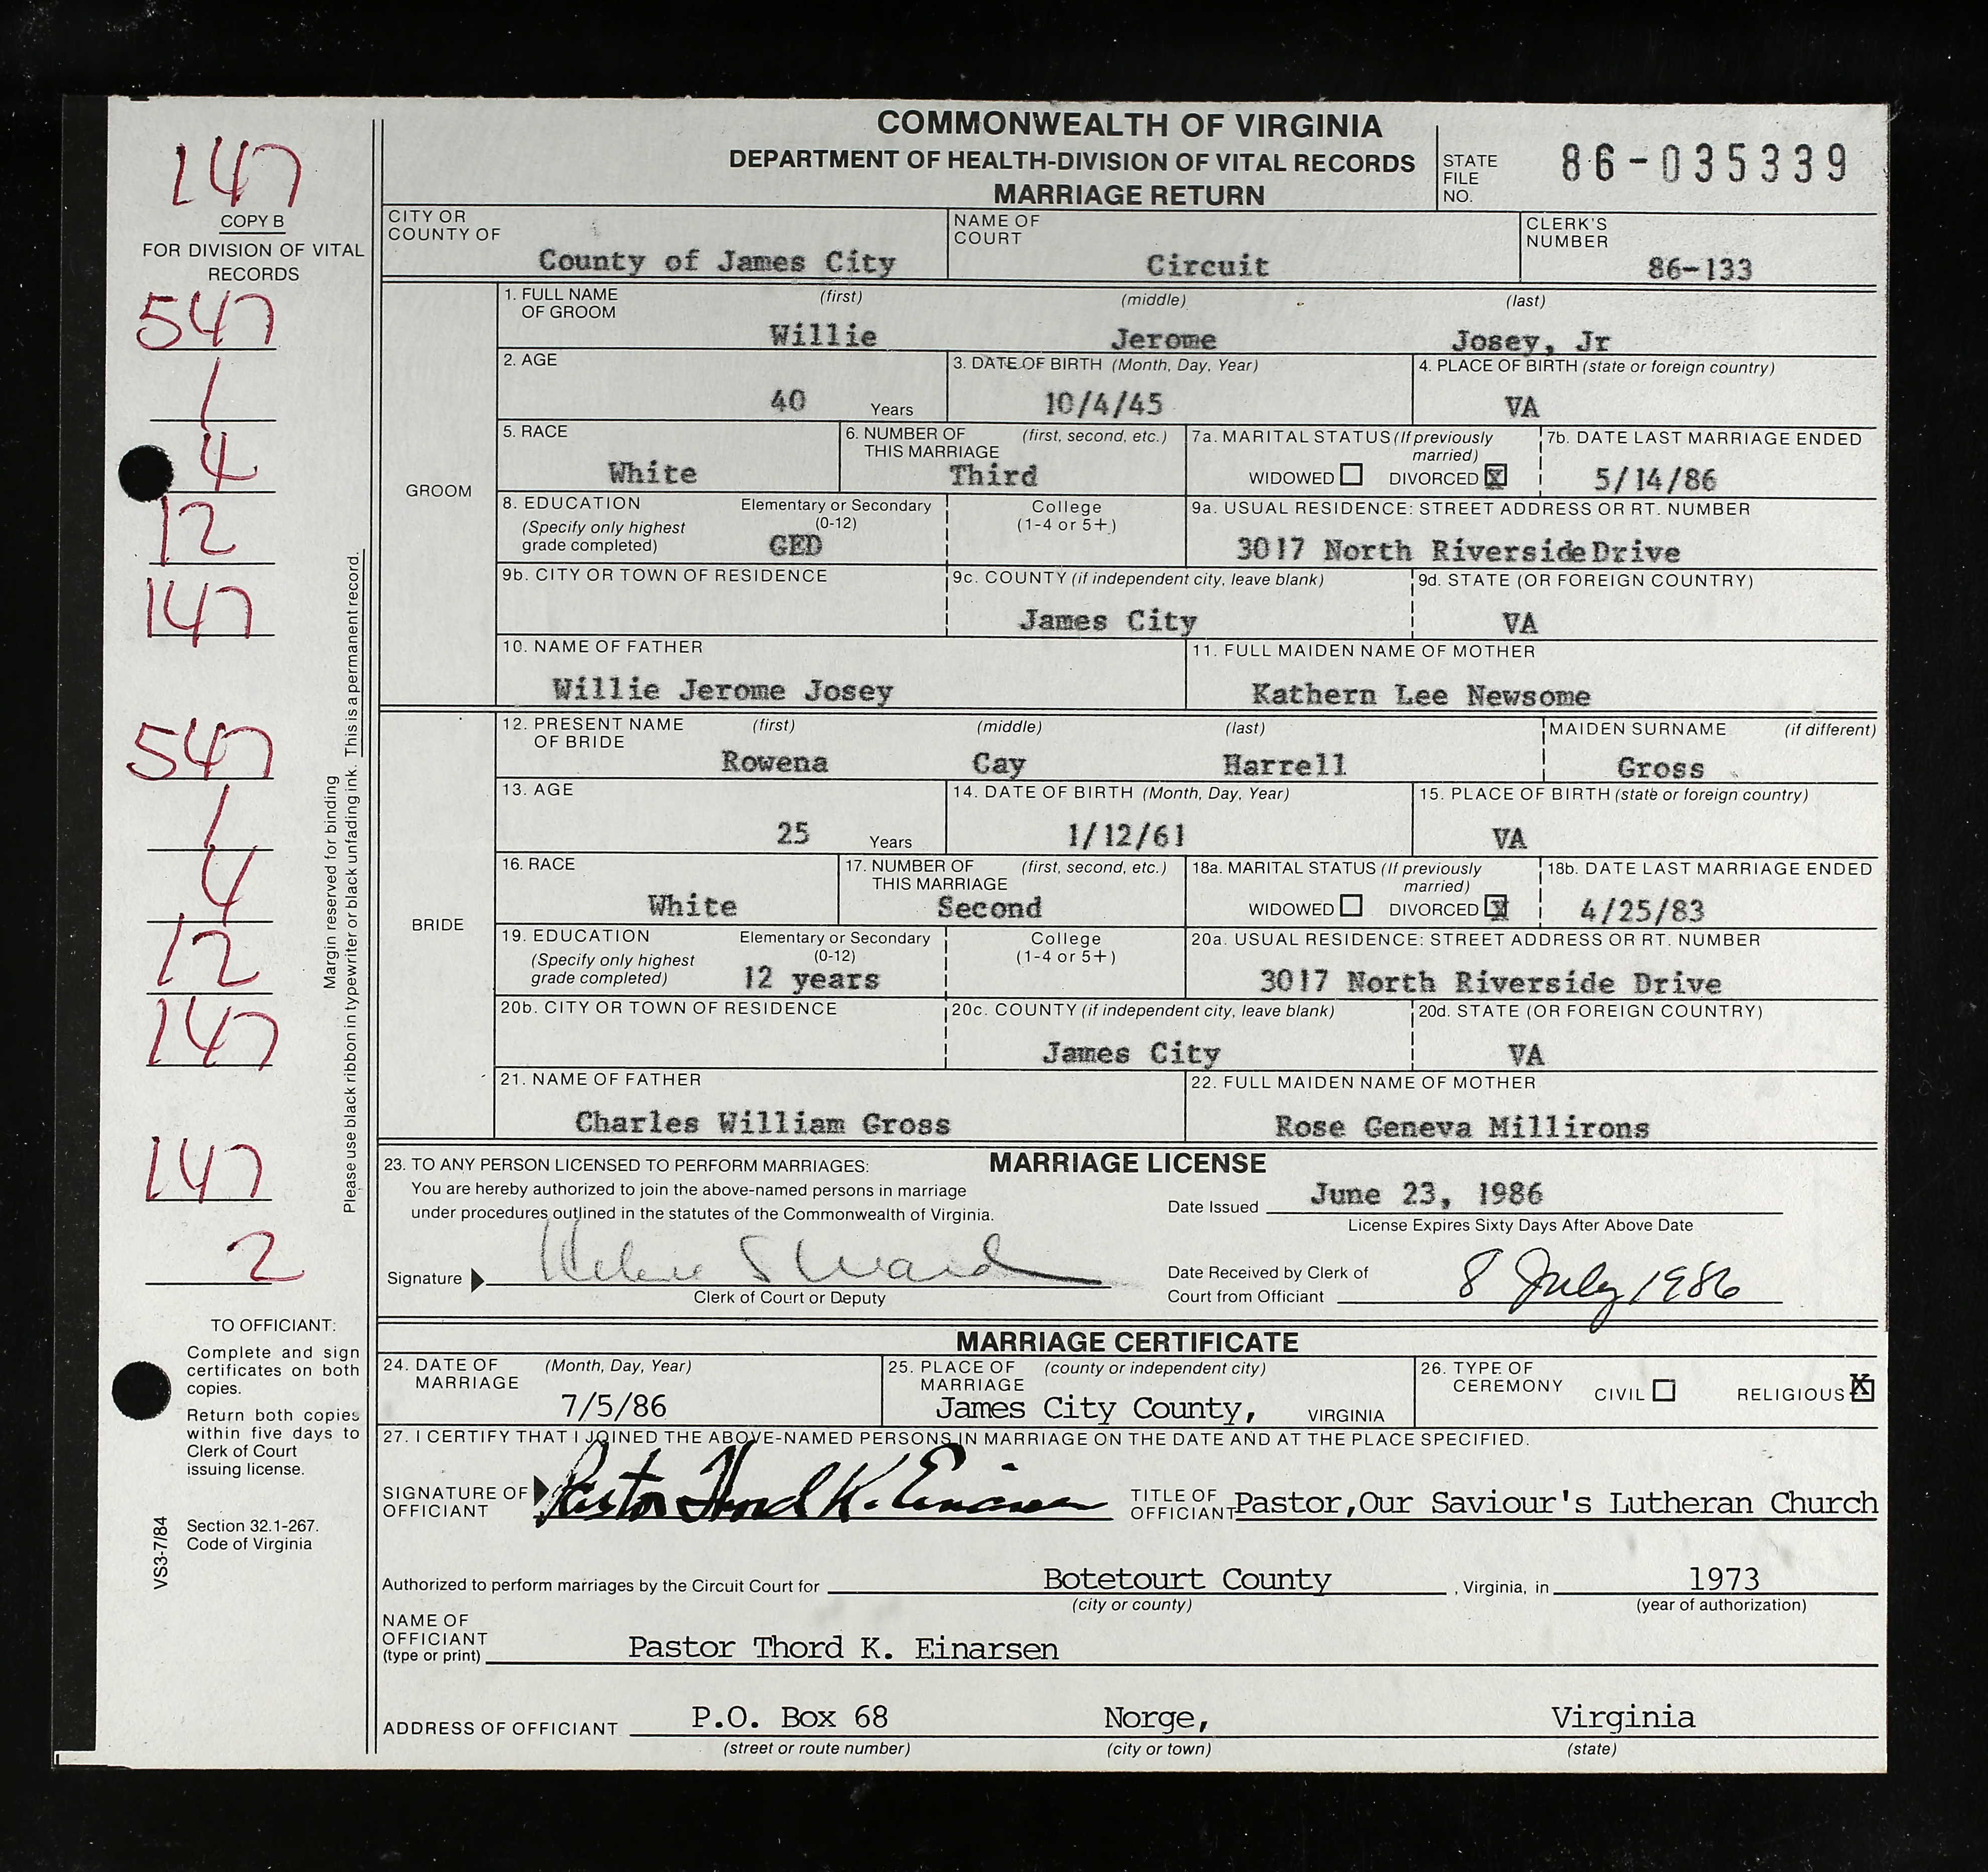 COMMONWEALTH OF VIRGINIA
DEPARTMENT OF HEALTH-DIVISION OF VITAL RECORDS
MARRIAGE RETURN
STATE FILE NO. 86-035339
147
COPY B
FOR DIVISION OF VITAL RECORDS
547
1
4
12
147
547
1
4
12
147
147
2
Margin reserved for binding
Please use black ribbon in typewriter or black unfading ink. This is a permanent record.
TO OFFICIANT:
Complete and sign
certificates on both
copies.
Return both copies
within five days to
Clerk of Court
issuing license.
Section 32.1-267.
Code of Virginia
VS3-7/84
CITY OR COUNTY OF County of James City
NAME OF COURT Circuit
CLERK'S NUMBER 86-133
GROOM
1. FULL NAME OF GROOM (first) (middle) (last)
Willie Jerome Josey, Jr
2. AGE 40 Years
3. DATE OF BIRTH (Month, Day, Year) 10/4/45
4. PLACE OF BIRTH (state or foreign country) VA
5. RACE White
6. NUMBER OF THIS MARRIAGE (first, second, etc.) Third
7a. MARITAL STATUS (If previously married) WIDOWED DIVORCED X
7b. DATE LAST MARRIAGE ENDED 5/14/86
8. EDUCATION (Specify only highest grade completed) Elementary or Secondary (0-12) GED College (1-4 or 5+)
9a. USUAL RESIDENCE: STREET ADDRESS OR RT. NUMBER 3017 North Riverside Drive
9b. CITY OR TOWN OF RESIDENCE
9c. COUNTY (if independent city, leave blank) James City
9d. STATE (OR FOREIGN COUNTRY) VA
10. NAME OF FATHER Willie Jerome Josey
11. FULL MAIDEN NAME OF MOTHER Kathern Lee Newsome
BRIDE
12. PRESENT NAME OF BRIDE (first) (middle) (last) MAIDEN SURNAME (if different)
Rowena Cay Harrell Gross
13. AGE 25 Years
14. DATE OF BIRTH (Month, Day, Year) 1/12/61
15. PLACE OF BIRTH (state or foreign country) VA
16. RACE White
17. NUMBER OF THIS MARRIAGE (first, second, etc.) Second
18a. MARITAL STATUS (If previously married) WIDOWED DIVORCED X
18b. DATE LAST MARRIAGE ENDED 4/25/83
19. EDUCATION (Specify only highest grade completed) Elementary or Secondary (0-12) 12 years College (1-4 or 5+)
20a. USUAL RESIDENCE: STREET ADDRESS OR RT. NUMBER 3017 North Riverside Drive
20b. CITY OR TOWN OF RESIDENCE
20c. COUNTY (if independent city, leave blank) James City
20d. STATE (OR FOREIGN COUNTRY) VA
21. NAME OF FATHER Charles William Gross
22. FULL MAIDEN NAME OF MOTHER Rose Geneva Millirons
MARRIAGE LICENSE
23. TO ANY PERSON LICENSED TO PERFORM MARRIAGES:
You are hereby authorized to join the above-named persons in marriage
under procedures outlined in the statutes of the Commonwealth of Virginia.
Date Issued June 23, 1986
License Expires Sixty Days After Above Date
Signature Helene S Ward
Clerk of Court or Deputy
Date Received by Clerk of Court from Officiant 8 July 1986
MARRIAGE CERTIFICATE
24. DATE OF MARRIAGE (Month, Day, Year) 7/5/86
25. PLACE OF MARRIAGE (county or independent city) James City County, VIRGINIA
26. TYPE OF CEREMONY CIVIL RELIGIOUS X
27. I CERTIFY THAT I JOINED THE ABOVE-NAMED PERSONS IN MARRIAGE ON THE DATE AND AT THE PLACE SPECIFIED.
SIGNATURE OF OFFICIANT Pastor Thord K. Einarsen
TITLE OF OFFICIANT Pastor,Our Saviour's Lutheran Church
Authorized to perform marriages by the Circuit Court for Botetourt County , Virginia, in 1973
(city or county) (year of authorization)
NAME OF OFFICIANT (type or print) Pastor Thord K. Einarsen
ADDRESS OF OFFICIANT P.O. Box 68 Norge, Virginia
(street or route number) (city or town) (state)